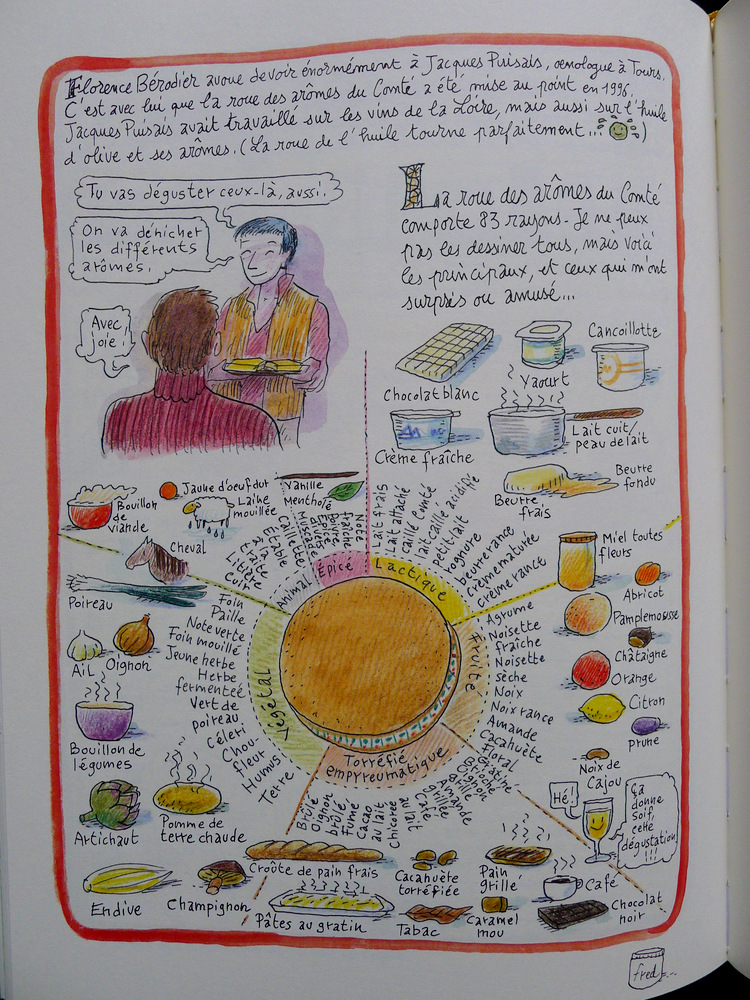 Florence Bérodier avoue devoir énormément à Jacques Puisais, œnologue à Tours.
C'est avec lui que la roue des arômes du Comté a été mise au point en 1996.
Jacques Puisais avait travaillé sur les vins de la Loire, mais aussi sur l'huile
d'olive et ses arômes. (La roue de l'huile tourne parfaitement... )
Tu vas déguster ceux-là, aussi.
On va dénicher
les différents
arômes.
Avec
joie !
La roue des arômes du Comté
comporte 83 rayons. Je ne peux
pas les dessiner tous, mais voilà
les principaux, et ceux qui m'ont
surpris ou amusé...
Chocolat blanc
Yaourt
Cancoillotte
Crème fraîche
Lait cuit/
peau de lait
Beurre
frais
Beurre
fondu
Bouillon
de
viande
Jaune d'œuf dur
Laine
mouillée
Vanille
Mentholé
Cheval
Poireau
Ail
Oignon
Bouillon de
légumes
Artichaut
Pomme de
terre chaude
Endive
Champignon
Miel toutes
fleurs
Abricot
Pamplemousse
Châtaigne
Orange
Citron
Prune
Noix de
Cajou
Hé!
Ça
donne
soif,
cette
dégustation
!!!
Animal
Épicé
Lactique
Fruité
Torréfié
empyreumatique
Végétal
Cuir
Litière
Étable
Caillette
Muscade
Poivre
Note
fraîche
Lait frais
Lait affaché
caillé Comté
lait caillé acidifié
petit-lait
rognure
beurre rance
crème maturée
crème rance
Agrume
Noisette
fraîche
Noisette
sèche
Noix
Noix rance
Amande
Cacahuète
Floral
Foin
Paille
Note verte
Foin mouillé
Jeune herbe
Herbe
fermentée
Vert de
poireau
Céleri
Chou-
fleur
Humus
Terre
Brûlé
Oignon
brûlé
Fumé
Cacao
au lait
Chicorée
au lait
Amande
grillée
Oignon
grillé
Brioche
Croûte de pain frais
Cacahuète
torréfiée
Pain
grillé
Café
Pâtes au gratin
Tabac
Caramel
mou
Chocolat
noir
fred